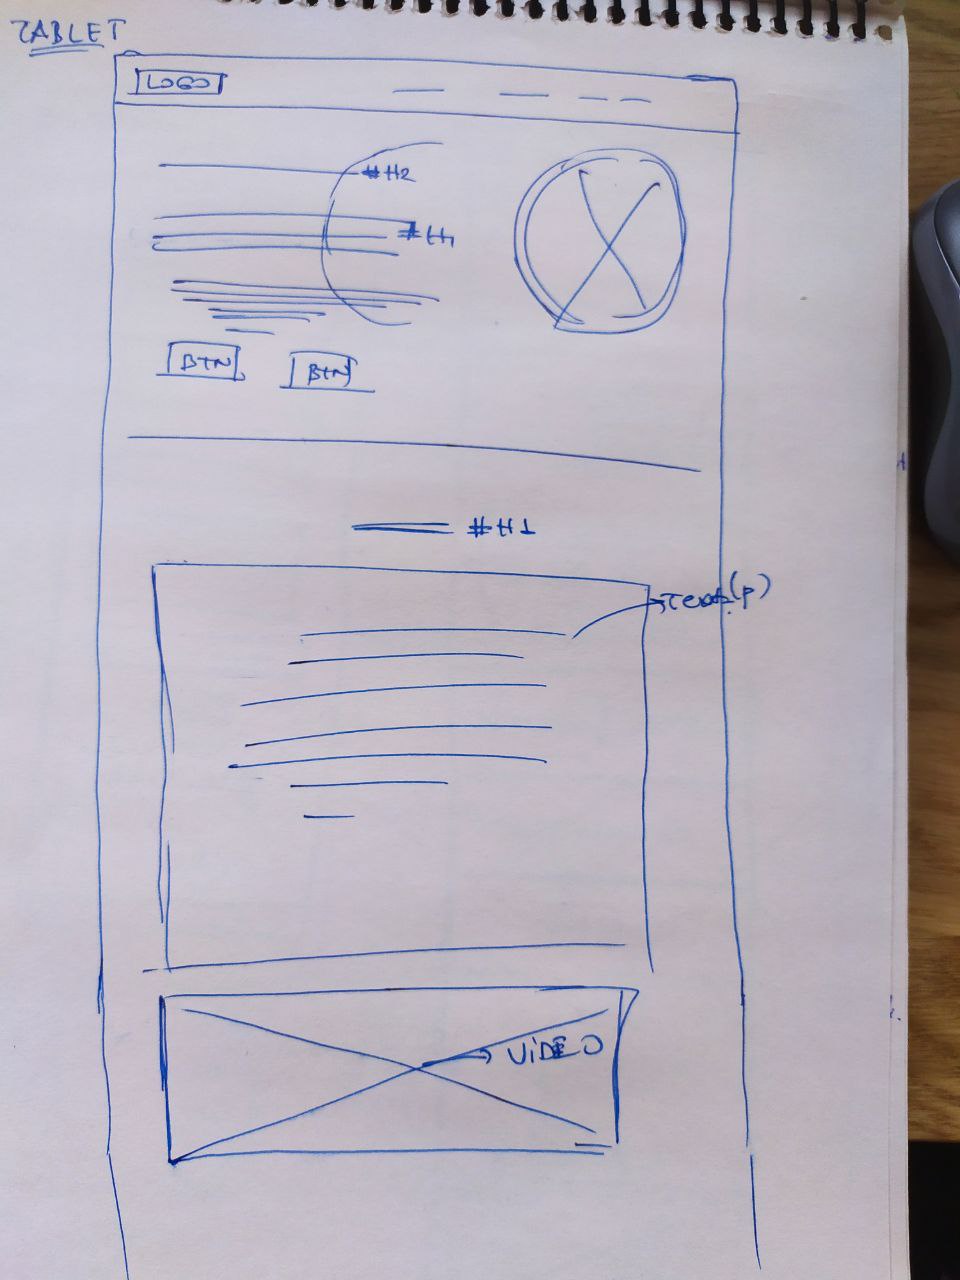 TABLET
LOGO
#H2
#H1
BTN BTN
#H1
Text(p)
VIDEO